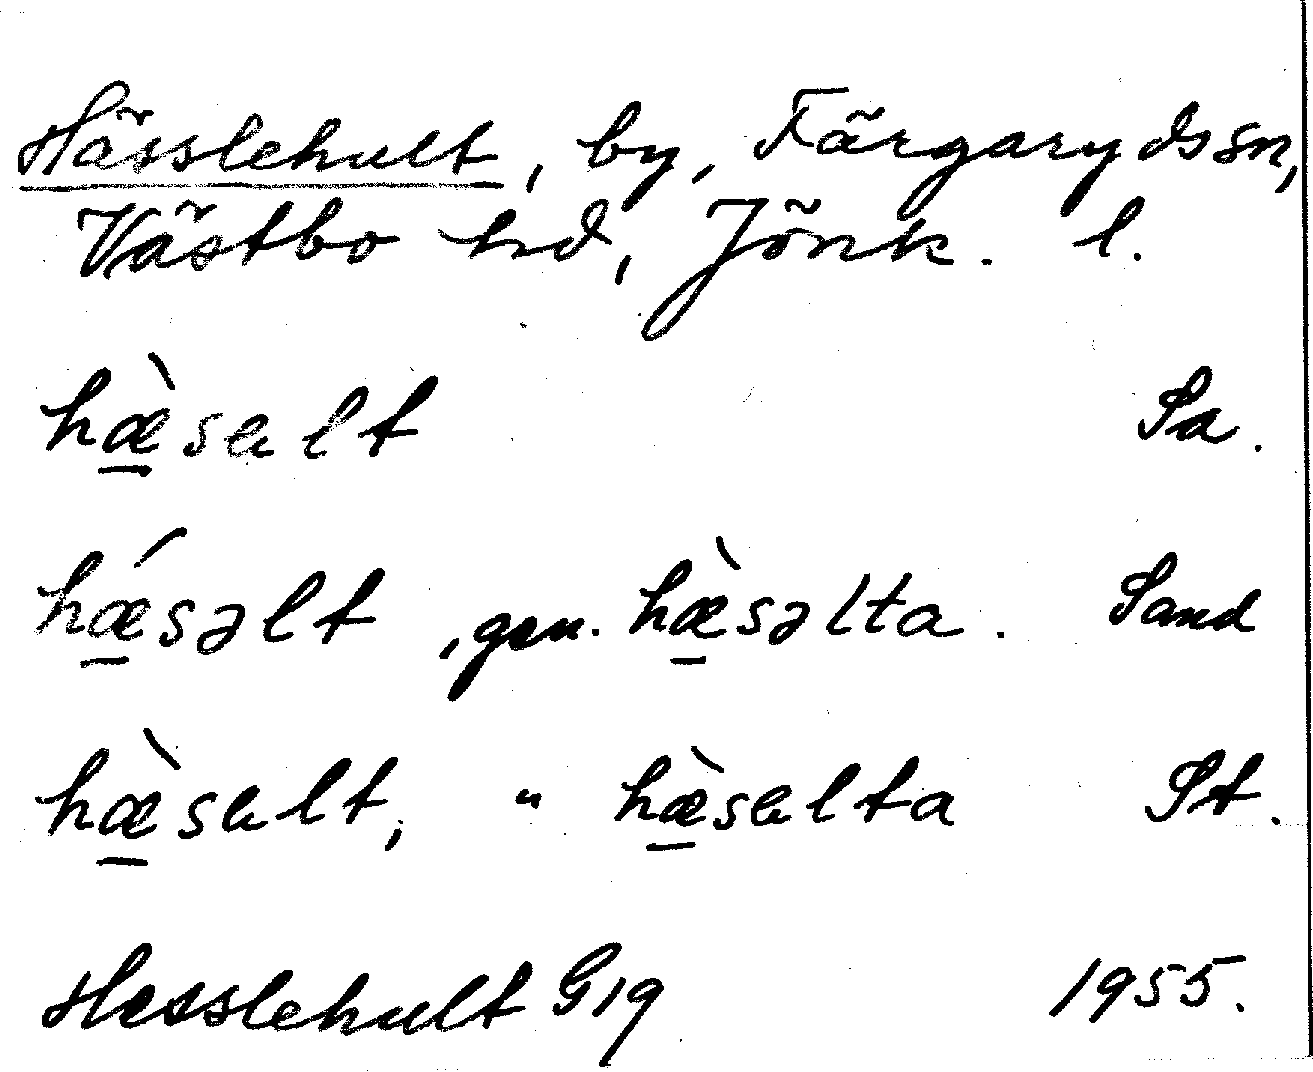 Hässlehult, by, Färgaryds sn,
Västbo hd, Jönk. l.
hæ̱̀salt Sa.
hǽ̱səlt, gen. hæ̱̀səlta. Sand
hæ̱̀salt, " hæ̱̀salta St.
Hesslehult G19 1955.